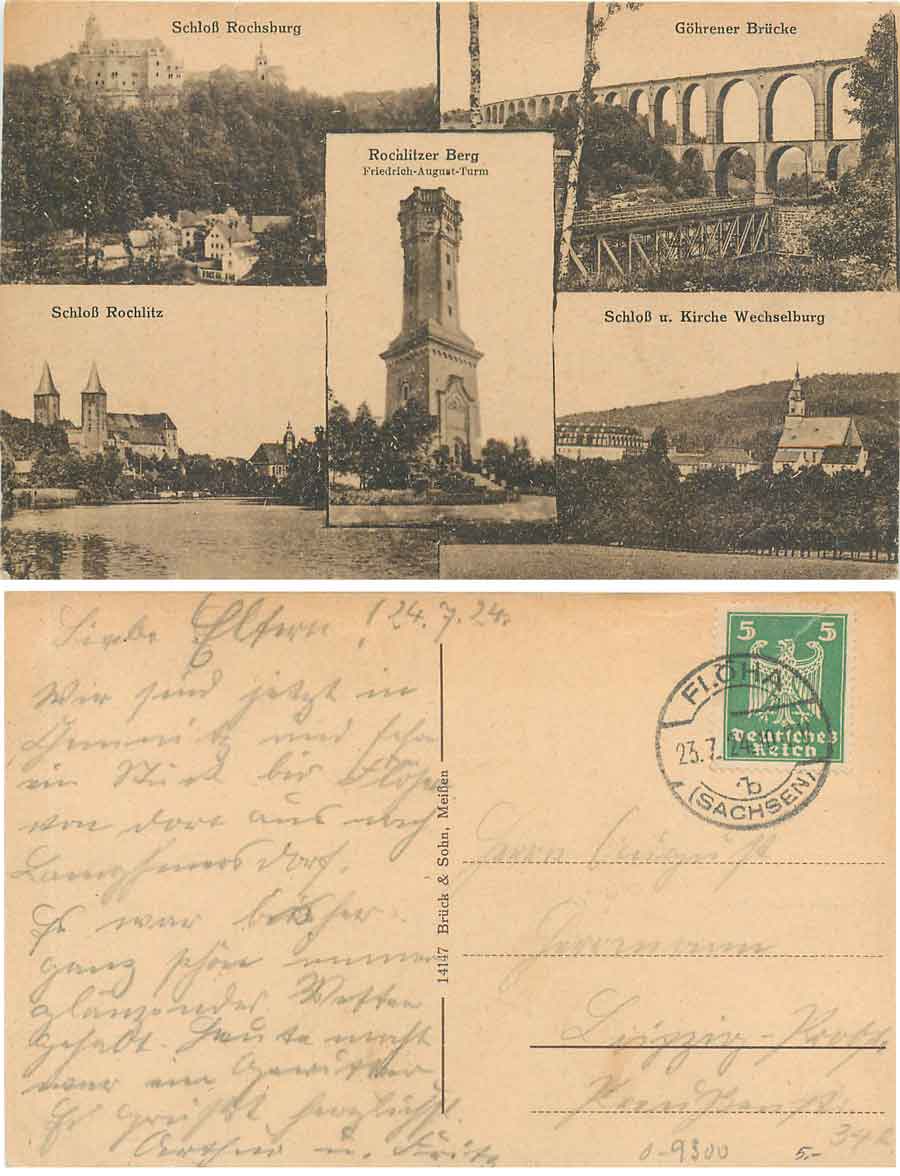 Schloß Rochsburg
Göhrener Brücke
Rochlitzer Berg
Friedrich-August-Turm
Schloß Rochlitz
Schloß u. Kirche Wechselburg
Liebe Eltern! 24.7.24.
Wir sind jetzt in
Chemnitz und
ein Stück bis Flöha
von dort aus nach
Es war bisher
ganz schön immer
glänzendes Wetter
gehabt. Heute Nacht
war ein Gewitter
Es grüßt herzlichst
u. Fritz
14147 Brück & Sohn, Meißen
5 5
Deutsches
Reich
FLÖHA
23.7.24
b
(SACHSEN)
Herrn August
Herrmann
Leipzig-
0-9300
5.-